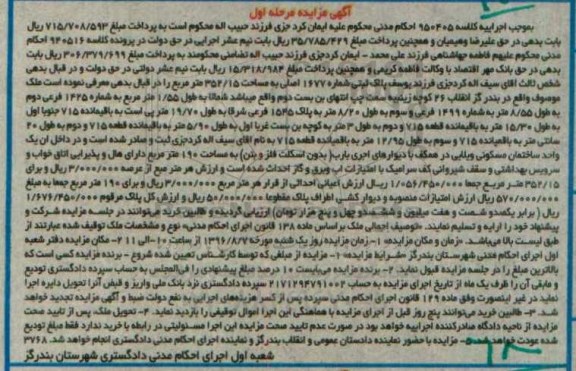 آگهی مزایده مرحله اول
بموجب اجراییه کلاسه ۹۵۰۴۰۵ احکام مدنی محکوم علیه ایمان کرد جزی فرزند حبیب اله محکوم است به پرداخت مبلغ ۷۱۵/۷۰۸/۵۹۳ ریال
بابت بدهی در حق علیرضا وهیمیان و همچنین پرداخت مبلغ ۳۵/۷۸۵/۴۲۹ ریال بابت نیم عشر اجرایی در حق دولت در پرونده کلاسه ۹۴۰۵۱۶ احکام
مدنی محکوم علیهم فاطمه جهاشتاهی فرزند علی محمد - ایمان کردجزی فرزند حبیب اله تضامنی محکومند به پرداخت مبلغ ۳۰۶/۳۷۹/۶۹۹ ریال
بدهی در حق بانک مهر اقتصاد با وکالت فاطمه کریمی و همچنین پرداخت مبلغ ۱۵/۳۱۸/۹۸۴ ریال بابت نیم عشر دولتی در حق دولت و در قبال بدهی
شخص ثالث آقای سیف اله کردجزی فرزند یوسف پلاک ثبتی شماره ۱۶۷۷ اصلی به مساحت ۳۵۲/۱۵ متر مربع را در قبال بدهی معرفی نموده است ملک
موصوف واقع در بندر گز انقلاب ۲۶ کوچه زینبیه سمت چپ انتهای بن بست دوم واقع میباشد شمالا به طول ۱/۵۵ متر مربع به شماره ۱۴۲۵ فرعی دوم
به طول ۸/۵۵ متر به شماره ۱۴۹۹ فرعی و سوم به طول ۸/۲۰ متر به پلاک ۱۵۴۵ فرعی شرقا به طول ۱۹/۷۰ متر پی است به باقیمانده ۷۱۵ جنوبا اول
به طول ۱۵/۳۰ متر به باقیمانده قطعه ۷۱۵ و دوم به طول ۳ متر به کوچه بن بست غربا اول به طول ۵/۹۰ متر به باقیمانده قطعه ۷۱۵ و دوم به طول ۲۰
سانتی متر به باقیمانده ۷۱۵ و سوم به طول ۱۲/۹۵ متر به باقیمانده قطعه ۷۱۵ به نام آقای سیف اله کردجزی ثبت و صادر شده است و در داخل ان یک
واحد ساختمان مسکونی ویلایی در همکف با دیوارهای اجری باربر( بدون اسکلت فلز و بتن) به مساحت ۱۹۰ متر مربع دارای هال و پذیرایی اتاق خواب و
سرویس بهداشتی و سقف شیروانی کف سرامیک با امتیازات اب وبرق و گاز احداث شده است و ارزش هر متر مربع از عرصه ۳/۰۰۰/۰۰۰ ریال و برای
۳۵۲/۱۵ متر مربع جمعا ۱/۰۵۶/۴۵۰/۰۰۰ ریال ارزش اعیانی احداثی از قرار هر متر مربع ۳/۰۰۰/۰۰۰ ریال و برای ۱۹۰ متر مربع جمعا به مبلغ
۵۷۰/۰۰۰/۰۰۰ ریال ارزش امتیازات منصوبه و دیوار کشی اطراف پلاک مقطوعا ۵۰/۰۰۰/۰۰۰ ریال و ارزش کل پلاک مرقوم ۱/۶۷۶/۴۵۰/۰۰۰
ریال ( برابر یکصدو شصت و هفت میلیون و ششصدو چهل و پنج هزار تومان) ارزیابی گردیده و طالبین خرید می‌توانند در جلسه مزایده شرکت و
پیشنهاد خود را ارایه و تسلیم نمایند. «توصیف اجمالی ملک براساس ماده ۱۳۸ قانون اجرای احکام مدنی» نوع و مشخصات ملک توقیف شده عبارتند از
طبق لیست بالا میباشد. «زمان و مکان مزایده» ۱- زمان مزایده روز یک شنبه مورخه ۱۳۹۶/۸/۷ از ساعت ۱۰ الی ۱۱ ۲- مکان مزایده دفتر شعبه
اول اجرای احکام مدنی شهرستان بندرگز «شرایط مزایده» ۱- مزایده از مبلغی که توسط کارشناس تعیین شده شروع - برنده مزایده کسی است که
بالاترین مبلغ را در جلسه مزایده قبول نماید. ۲- برنده مزایده می‌بایست ۱۰ درصد مبلغ پیشنهادی را فی‌المجلس به حساب سپرده دادگستری تودیع
و مابقی آن را ظرف یک ماه از تاریخ اجرای مزایده به حساب ۲۱۷۱۲۹۴۷۹۱۰۰۲ سپرده دادگستری نزد بانک ملی واریز و قبض آنرا تحویل دایره اجرا
نماید در غیر اینصورت وفق ماده ۱۲۹ قانون اجرای احکام مدنی سپرده پس از کسر هزینه‌های اجرایی به نفع دولت ضبط و آگهی مزایده تجدید خواهد
شد. ۳- طالبین خرید می‌توانند پنج روز قبل از اجرای مزایده با هماهنگی این اجرا اموال توقیفی را بازدید نماید. ۴- تحویل ملک، پس از تایید صحت
مزایده از ناحیه دادگاه صادرکننده اجراییه خواهد بود در صورت عدم تایید صحت مزایده این اجرا مسئولیتی در رابطه با خرید ندارد فقط مبلغ تودیع
شده عودت خواهد شد. ۵- مزایده با حضور نماینده دادستان عمومی و انقلاب بندرگز و نماینده اجرای احکام مدنی دادگستری انجام خواهد شد. ۳۷۶۸
شعبه اول اجرای احکام مدنی دادگستری شهرستان بندرگز